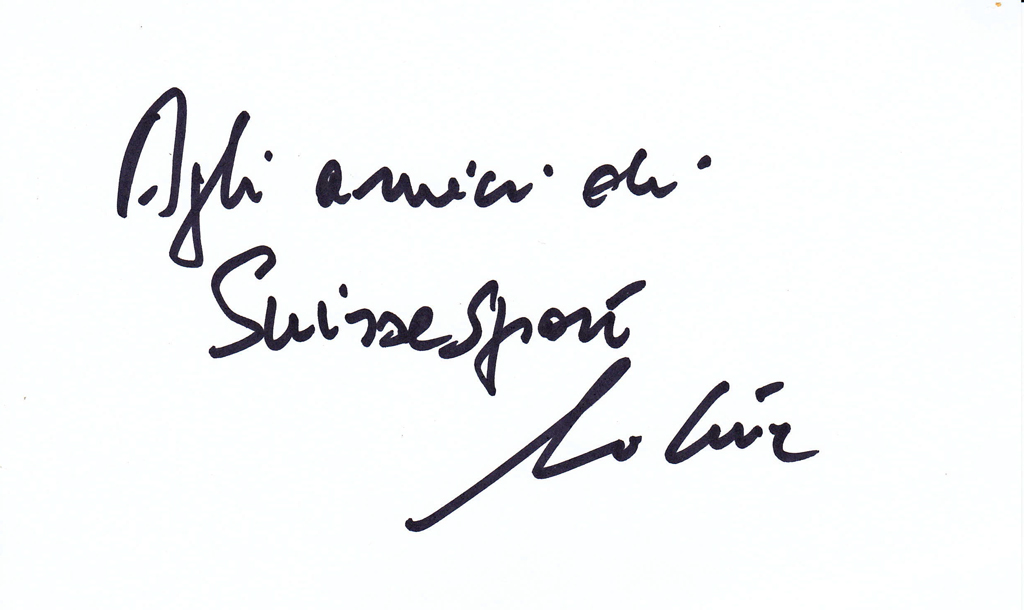 Agli amici di
SuisseSport